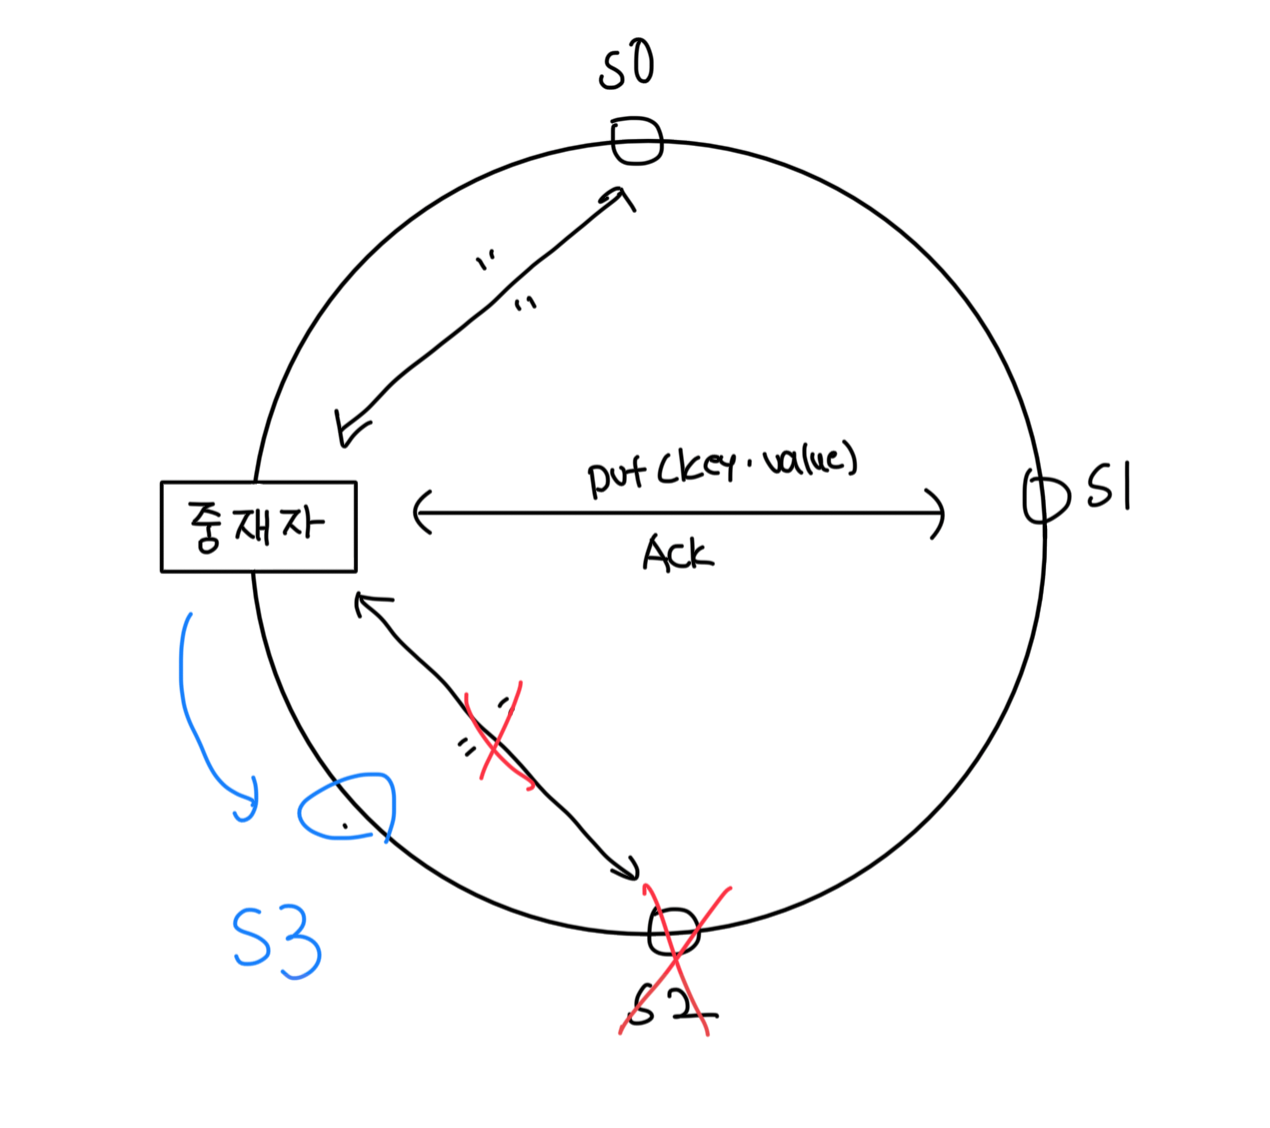 S0
"
"
put (key. value)
S1
중재자
Ack
"
"
S3
S2